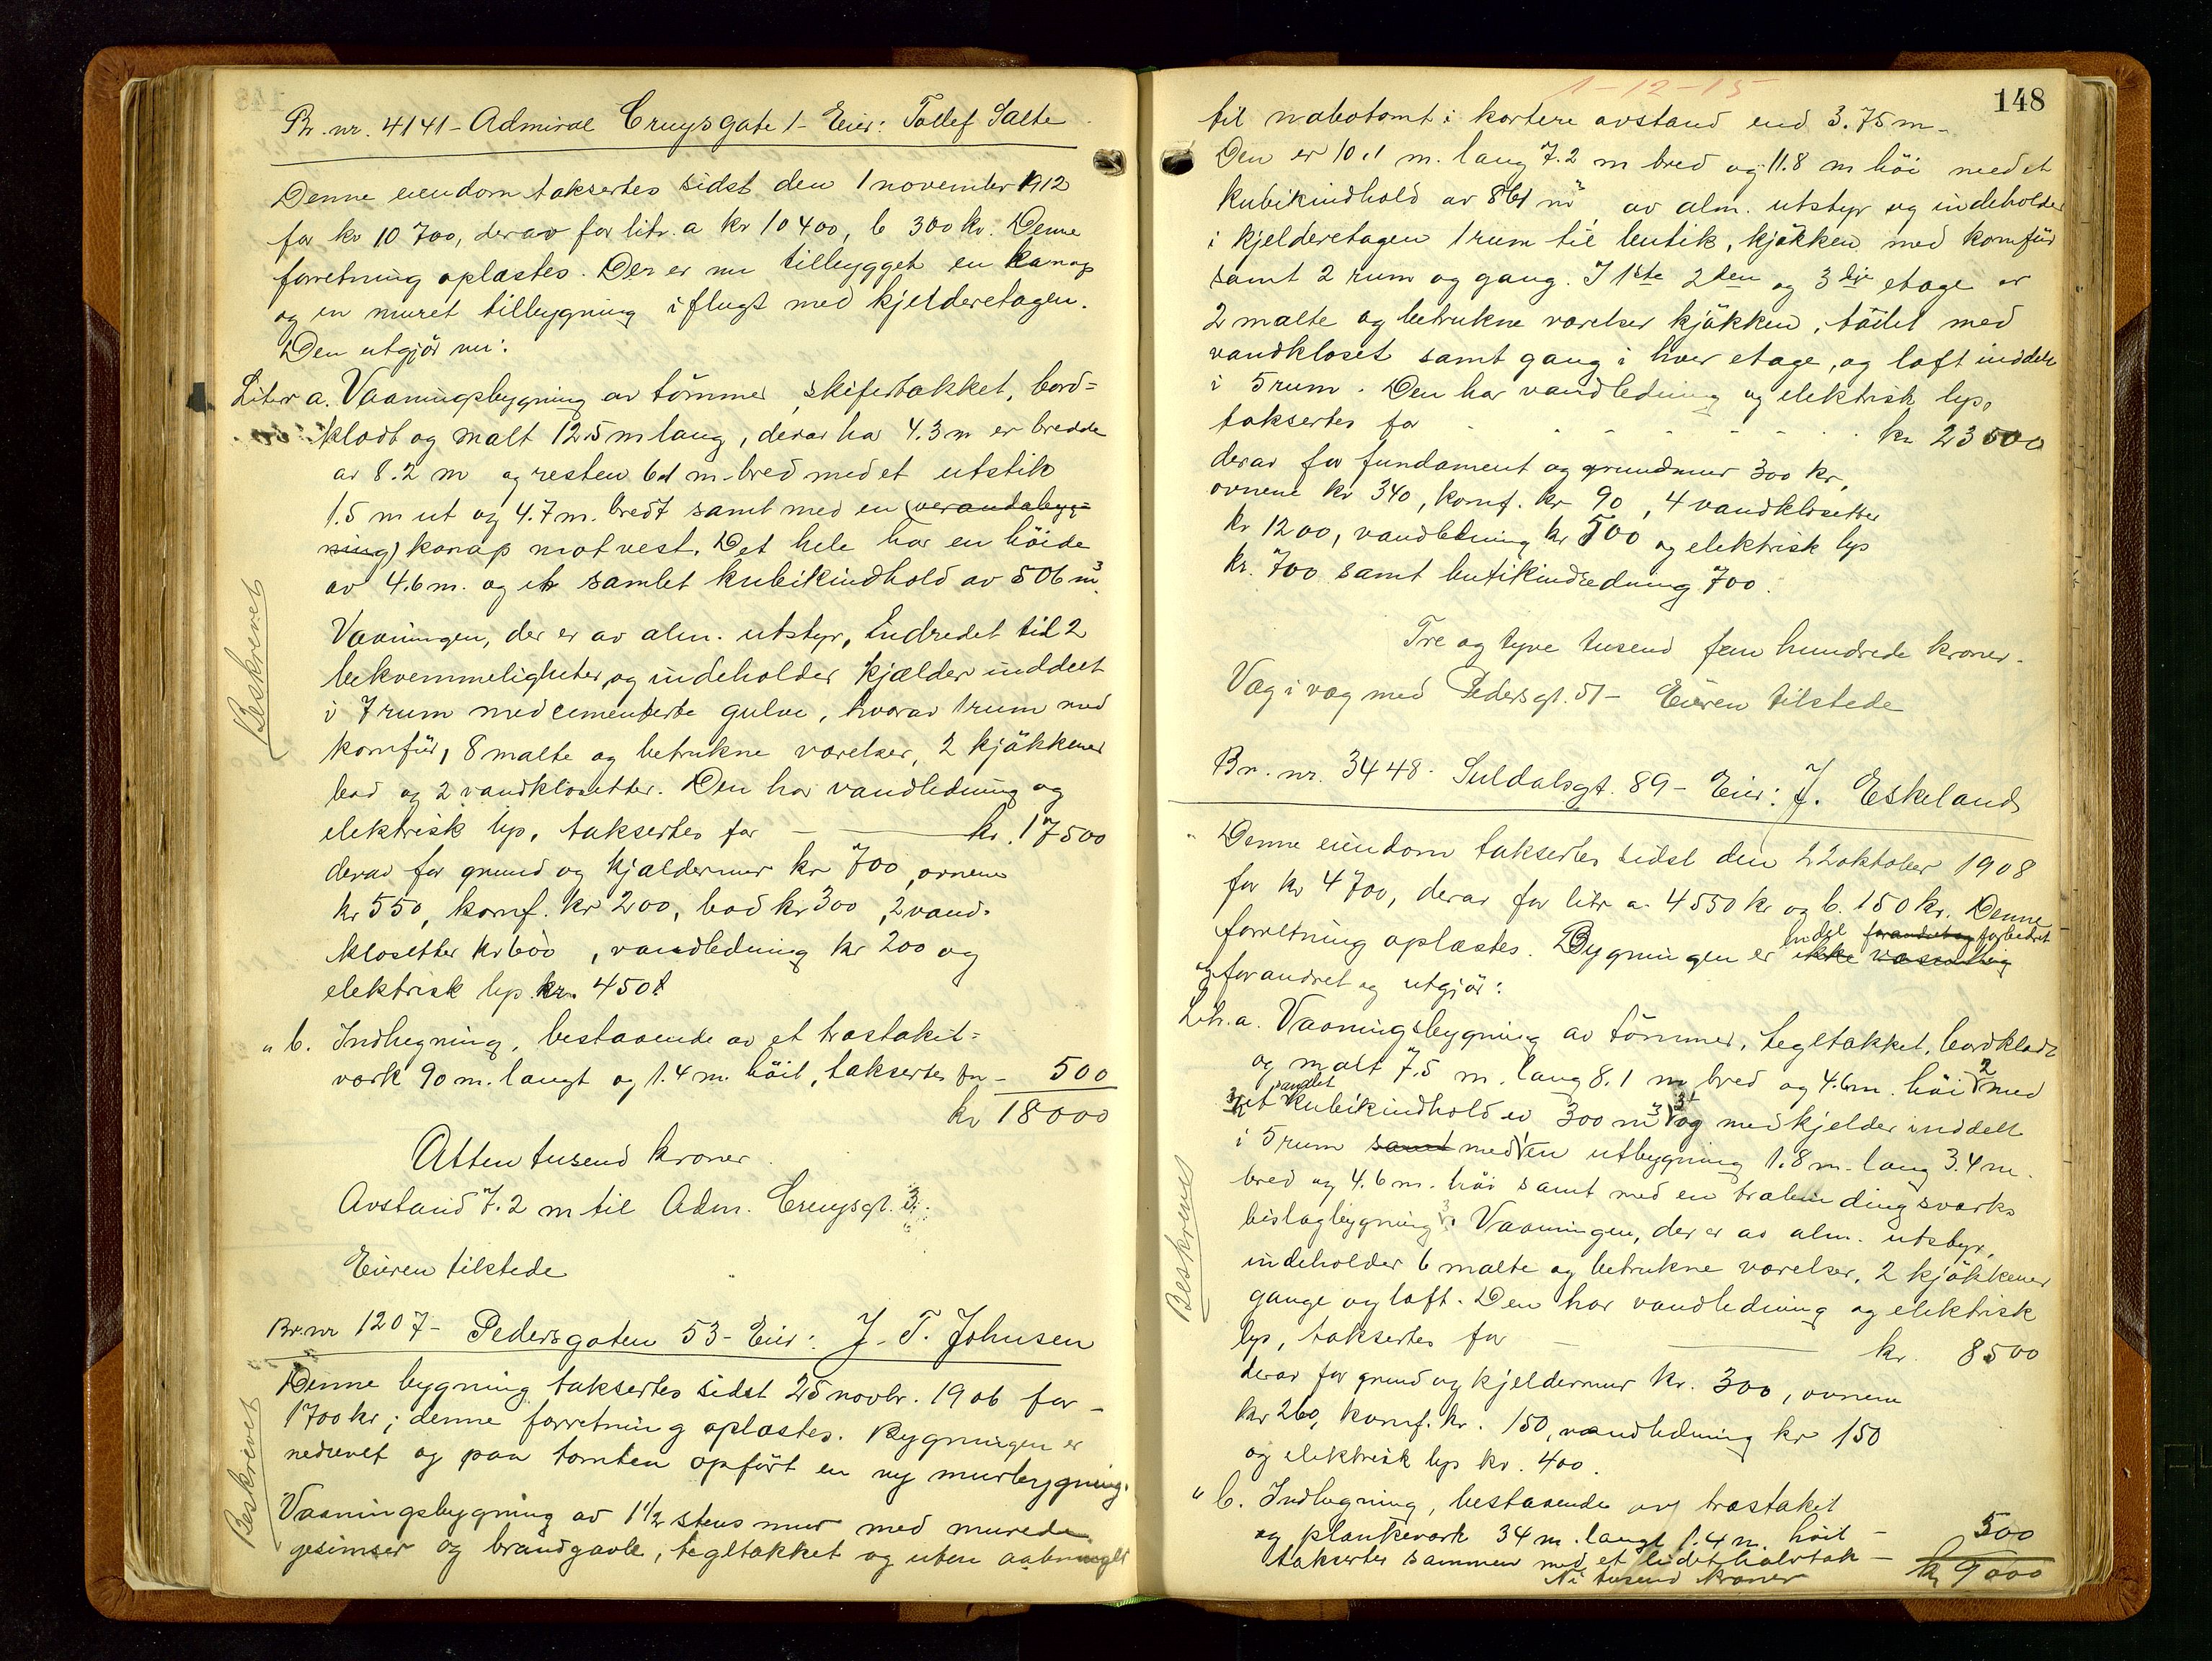 Br. nr. 4141 - Admiral Cruysgate 1 - Eier: Tollef Salte
Denne eiendom taksertes sidst den 1 november 1912
for kr 10700, derav for litr. a kr 10400, b 300 kr. Denne
forretning oplæstes. Der er nu tilbygget en karnap
og en muret tilbygning i flugt med kjelderetagen.
Den utgjör nu:
Litr a. Vaaningsbygning av tömmer, skifertækket, bord=
klædt og malt 12.5 m lang, derav har 4.3 m en bredde
av 8.2 m og resten 6.1 m bred med et utstik
1.5 m ut og 4.7 m. bredt samt med en (verandabyg=
ning) karnap mot vest. Det hele har en höide
av 4.6 m. og et samlet kubikindhold av 506 m³.
Beskrevet
Vaaningen, der er av alm. utstyr, indredet til 2
bekvemmeligheter, og indeholder kjælder inddelt
i 7 rum med cementerte gulve, hvorav 1 rum med
komfür, 8 malte og betrukne værelser, 2 kjökkener
bad og 2 vandklosetter. Den har vandledning og
elektrisk lys, taksertes for - kr. 17500
derav for grund og kjældermur kr 700, ovnene
kr 550, komf. kr 200, bad kr 300, 2 vand-
klosetter kr 600, vandledning kr 200 og
elektrisk lys kr. 450.
" b. Indhegning, bestaaende av et træstaket=
værk 90 m. langt og 1.4 m. höit, taksertes for - 500
kr 18000
Atten tusend kroner
Avstand 7.2 m til Adm. Cruysgt. 3.
Eieren tilstede
Br. nr 1207 - Pedersgaten 53 - Eier: J. T. Johnsen
Beskrevet
Denne bygning taksertes sidst 25 novbr. 1906 for -
1700 kr; denne forretning oplæstes. Bygningen er
nedrevet og paa tomten opfört en ny murbygning.
Vaaningsbygning av 1½ stens mur med murede
gesimser og brandgavle, tegltækket og uten aabninger
1-12-15
148
til nabotomt i kortere avstand end 3.75 m -
Den er 10.1 m. lang 7.2 m bred og 11.8 m höi med et
kubikindhold av 861 m³, av alm. utstyr og indeholder
i kjelderetagen 1 rum til butik, kjökken med komfür
samt 2 rum og gang. I 1ste 2den og 3dje etage er
2 malte og betrukne værelser kjökken, toilet med
vandkloset samt gang i hver etage, og loft inddelt
i 5 rum. Den har vandledning og elektrisk lys,
taksertes for - - - - - kr 23500
derav for fundament og grundmur 300 kr,
ovnene kr 340, komf. kr 90, 4 vandklosetter
kr 1200, vandledning kr 500 og elektrisk lys
kr. 700 samt butikindredning 700.
Tre og tyve tusend fem hundrede kroner.
Væg i væg med Pedersgt. 51 - Eieren tilstede
Br. nr. 3448. Suldalsgt. 89 - Eier: J. Eskeland
" Denne eiendom taksertes sidst den 22 oktober 1908
for kr 4700, derav for litr a. 4550 kr og b. 150 kr. Denne
bredt forandret og forbedret
forretning oplæstes. Bygningen er ikke væsentlig
og forandret og utgjör:
Litr. a. Vaaningsbygning av tömmer, tegltækket, bordklædt
og malt 7.5 m. lang 8.1 m bred og 4.6 m. höi med
samlet
et kubikindhold av 300 m³ og med kjelder inddelt
i 5 rum samt med en utbygning 1.8 m. lang 3.4 m.
bred og 4.6 m. höi samt med en træbindingsværks
Beskrevet
bislagbygning. Vaaningen, der er av alm. utstyr,
indeholder 6 malte og betrukne værelser, 2 kjökkener
gange og loft. Den har vandledning og elektrisk
lys, taksertes for - kr. 8500
derav for grund og kjeldermur kr. 300, ovnene
kr 260, komf. kr. 150, vandledning kr 150
og elektrisk lys kr. 400.
" b. Indhegning, bestaaende av træstaket
og plankeværk 34 m. langt 1.4 m. höit - 500
taksertes sammen med et lidet halvtak - kr 9000
Ni tusend kroner